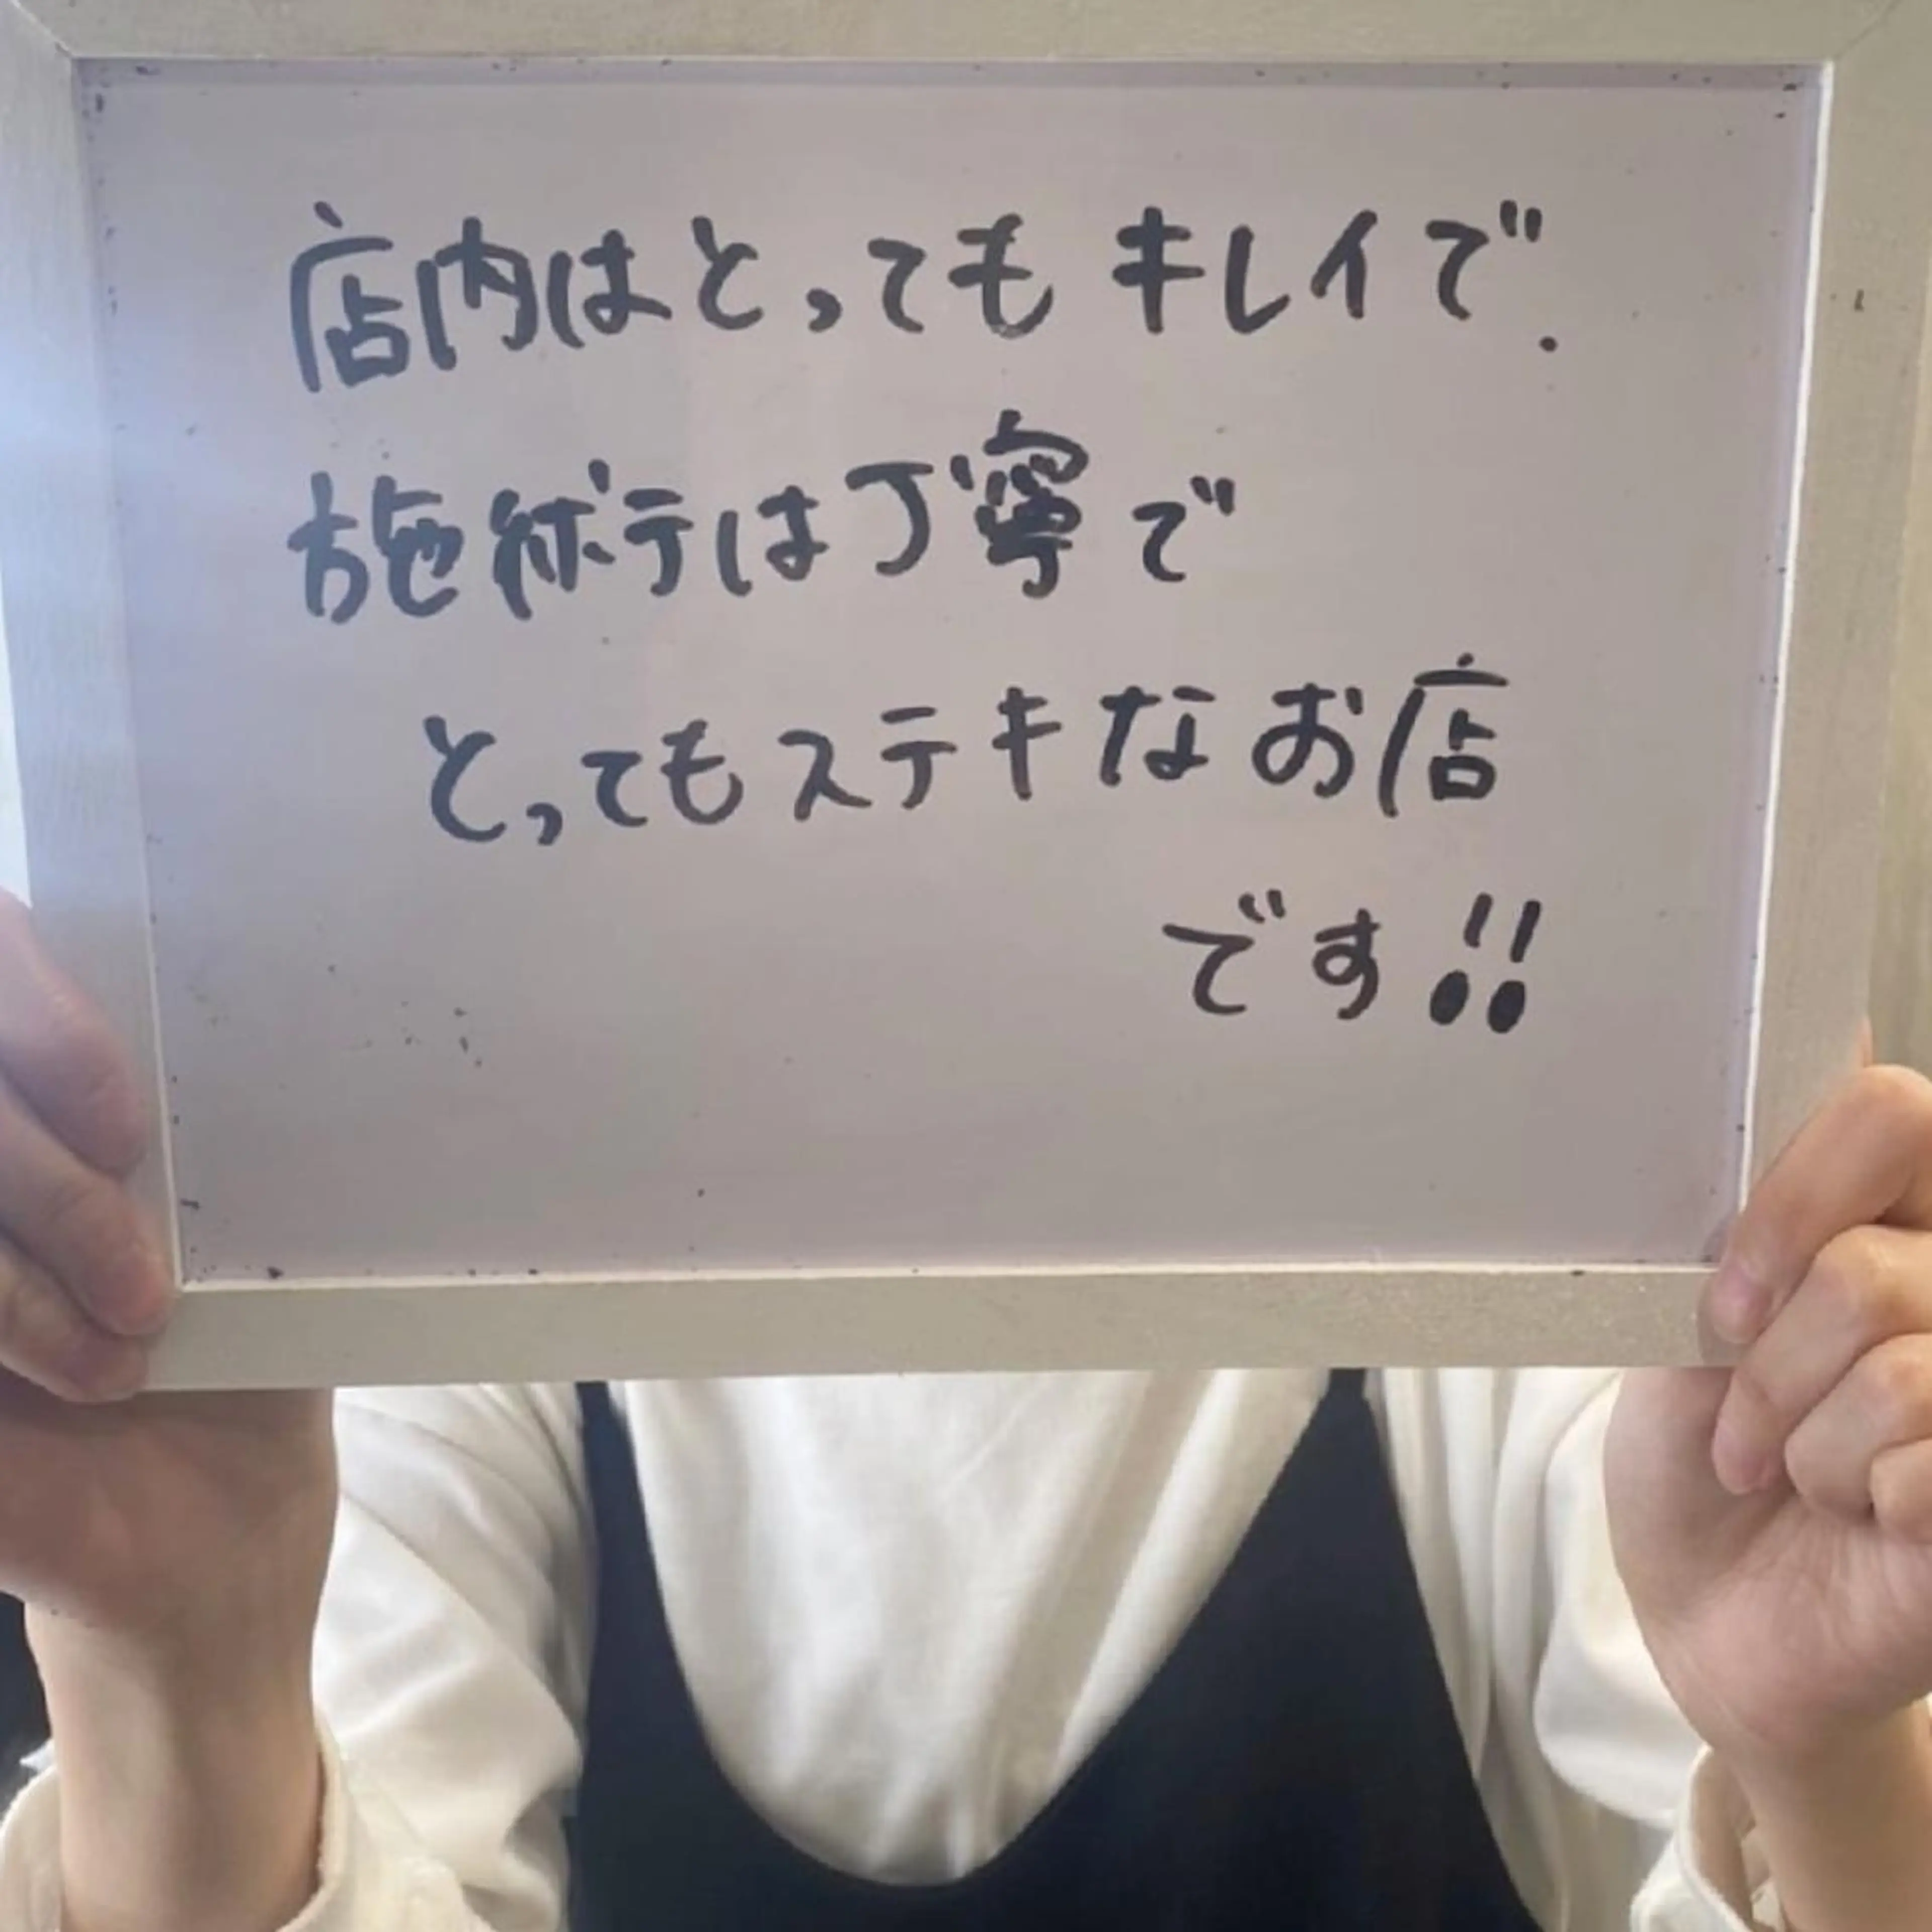 店内はとってもキレイで.
施術は丁寧で
とってもステキなお店
です!!